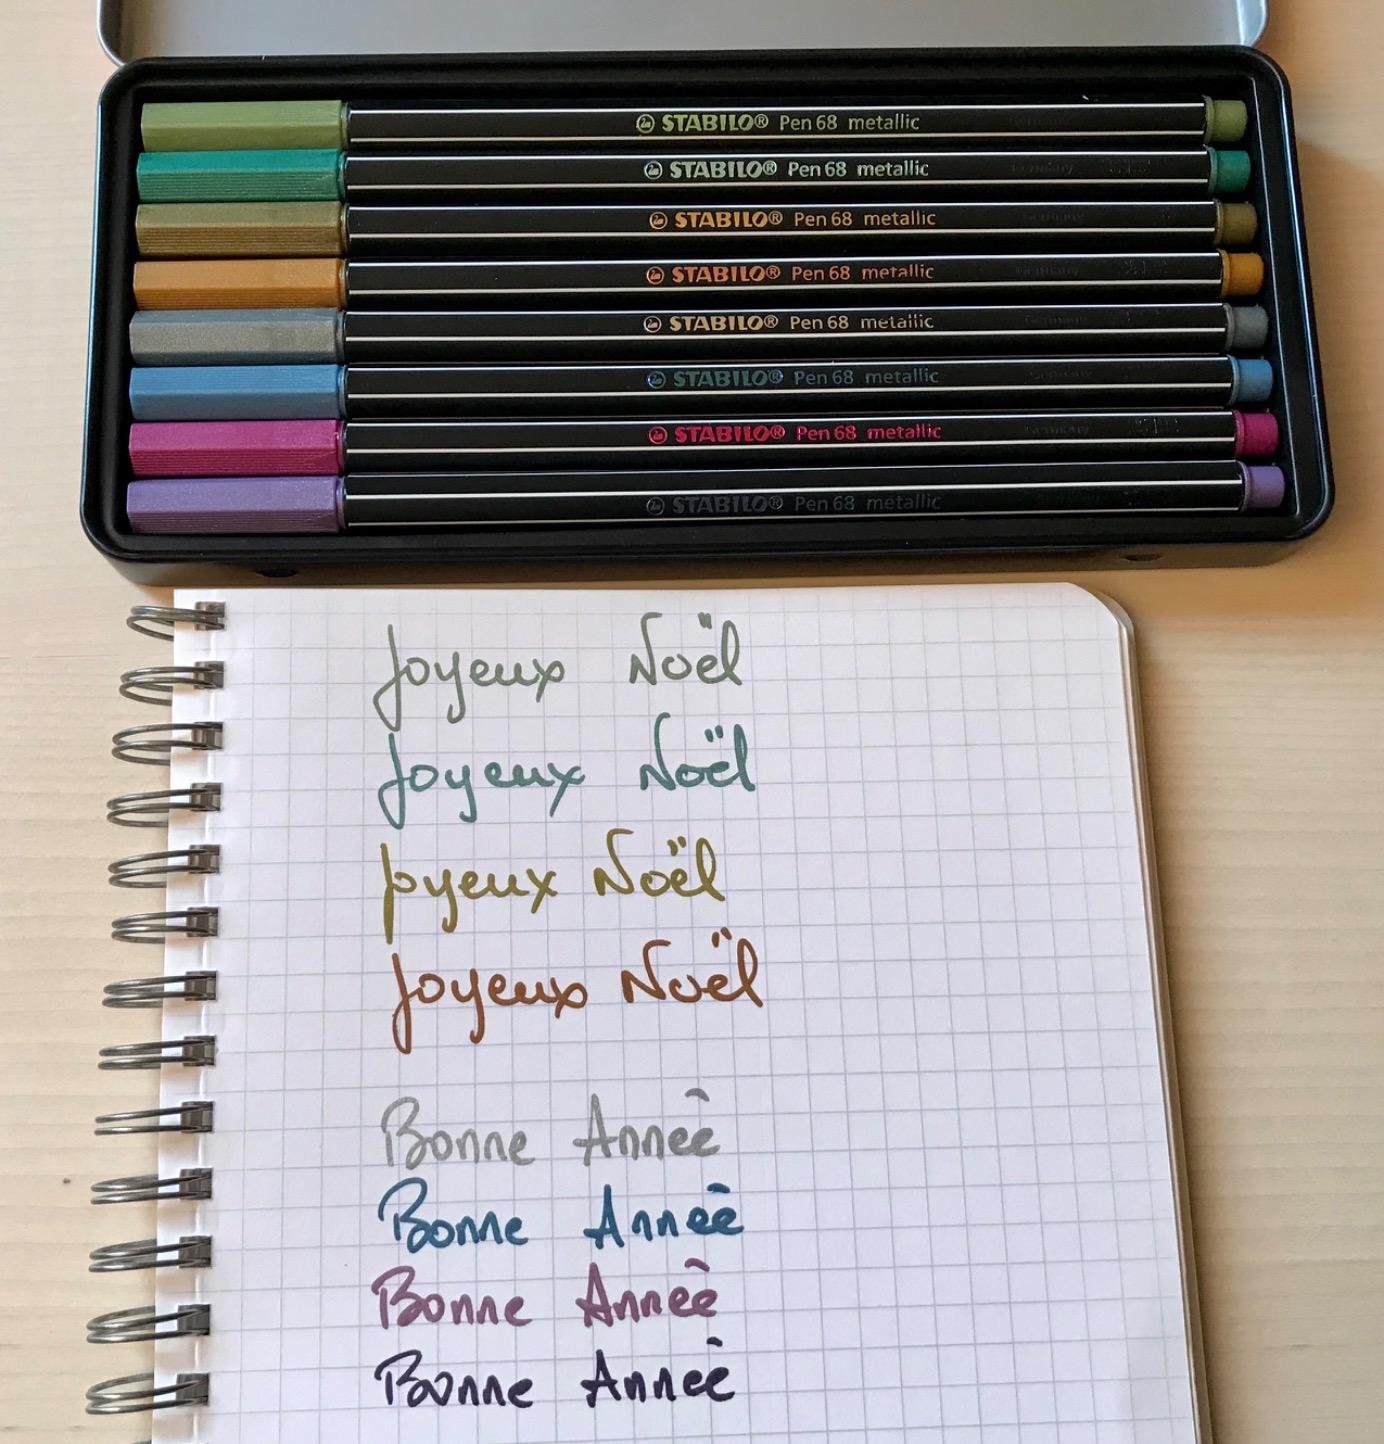 STABILO® Pen 68 metallic
STABILO® Pen 68 metallic
STABILO® Pen 68 metallic
STABILO® Pen 68 metallic
STABILO® Pen 68 metallic
STABILO® Pen 68 metallic
STABILO® Pen 68 metallic
STABILO® Pen 68 metallic
Joyeux Noël
Joyeux Noël
Joyeux Noël
Joyeux Noël
Bonne Année
Bonne Année
Bonne Année
Bonne Année